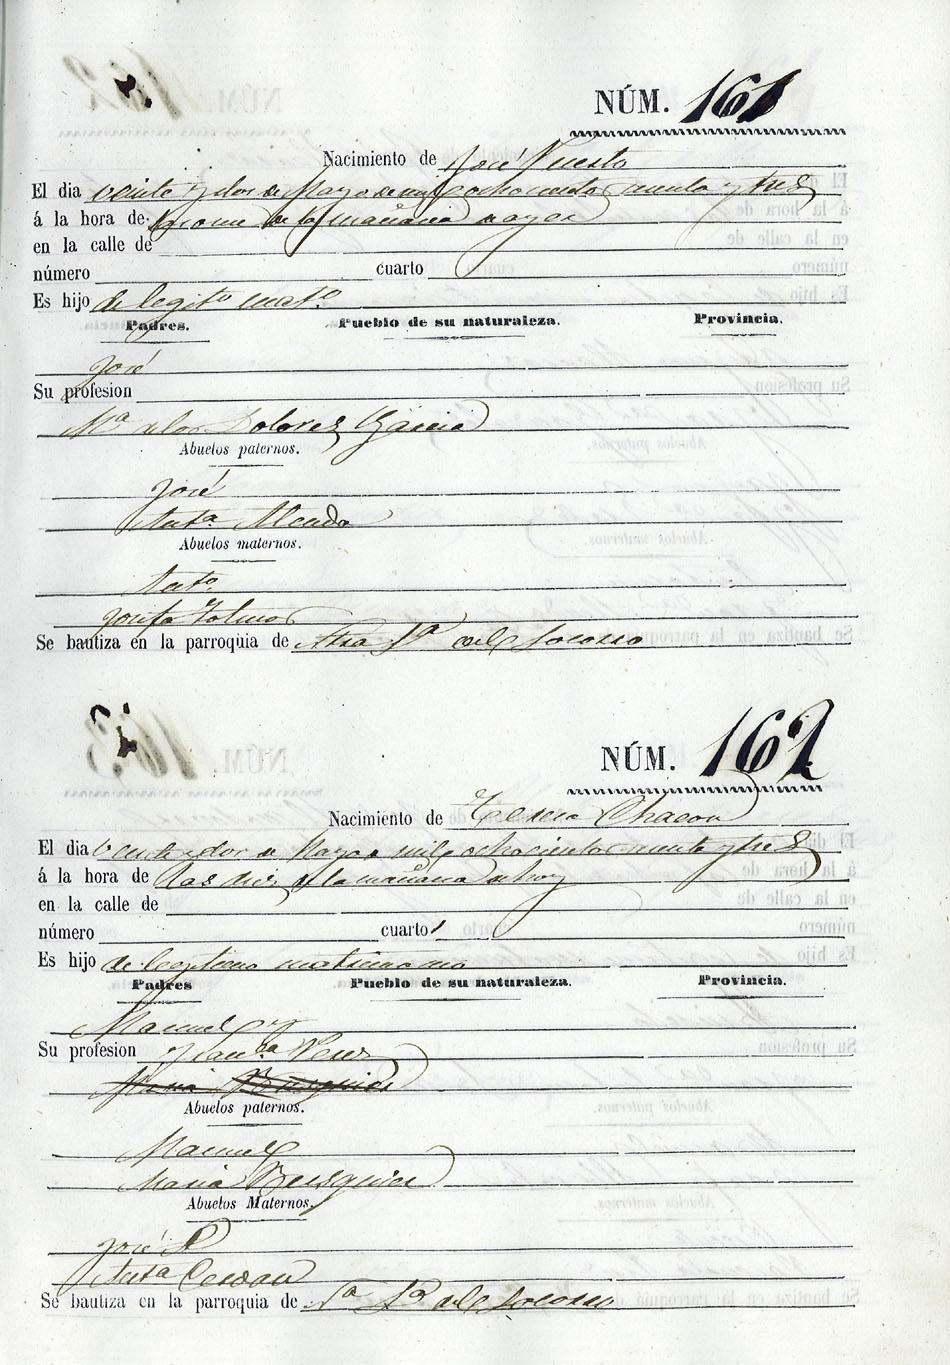 NÚM. 161
Nacimiento de José Puerto
El dia veinte y dos de Mayo de mil ochocientos y tres
á la hora de la mañana
en la calle de
número cuarto
Es hijo de legito. mato.
Padres. Pueblo de su naturaleza. Provincia.
José
Su profesion
Ma. de los Dolores Garcia
Abuelos paternos.
José
Anta.
Abuelos maternos.
Anto.
Josefa
Se bautiza en la parroquia de Ntra Sa. del Socorro
NÚM. 162
Nacimiento de Chacon
El dia veinte y dos de Mayo de mil ochocientos y tres
á la hora de las diez de la mañana de hoy
en la calle de
número cuarto
Es hijo de legitimo matrimonio
Padres Pueblo de su naturaleza. Provincia.
Manuel y
Su profesion Franca. Perez
Maria
Abuelos paternos.
Manuel
Maria
Abuelos Maternos.
José P
Anta
Se bautiza en la parroquia de Na. Sa. del Socorro